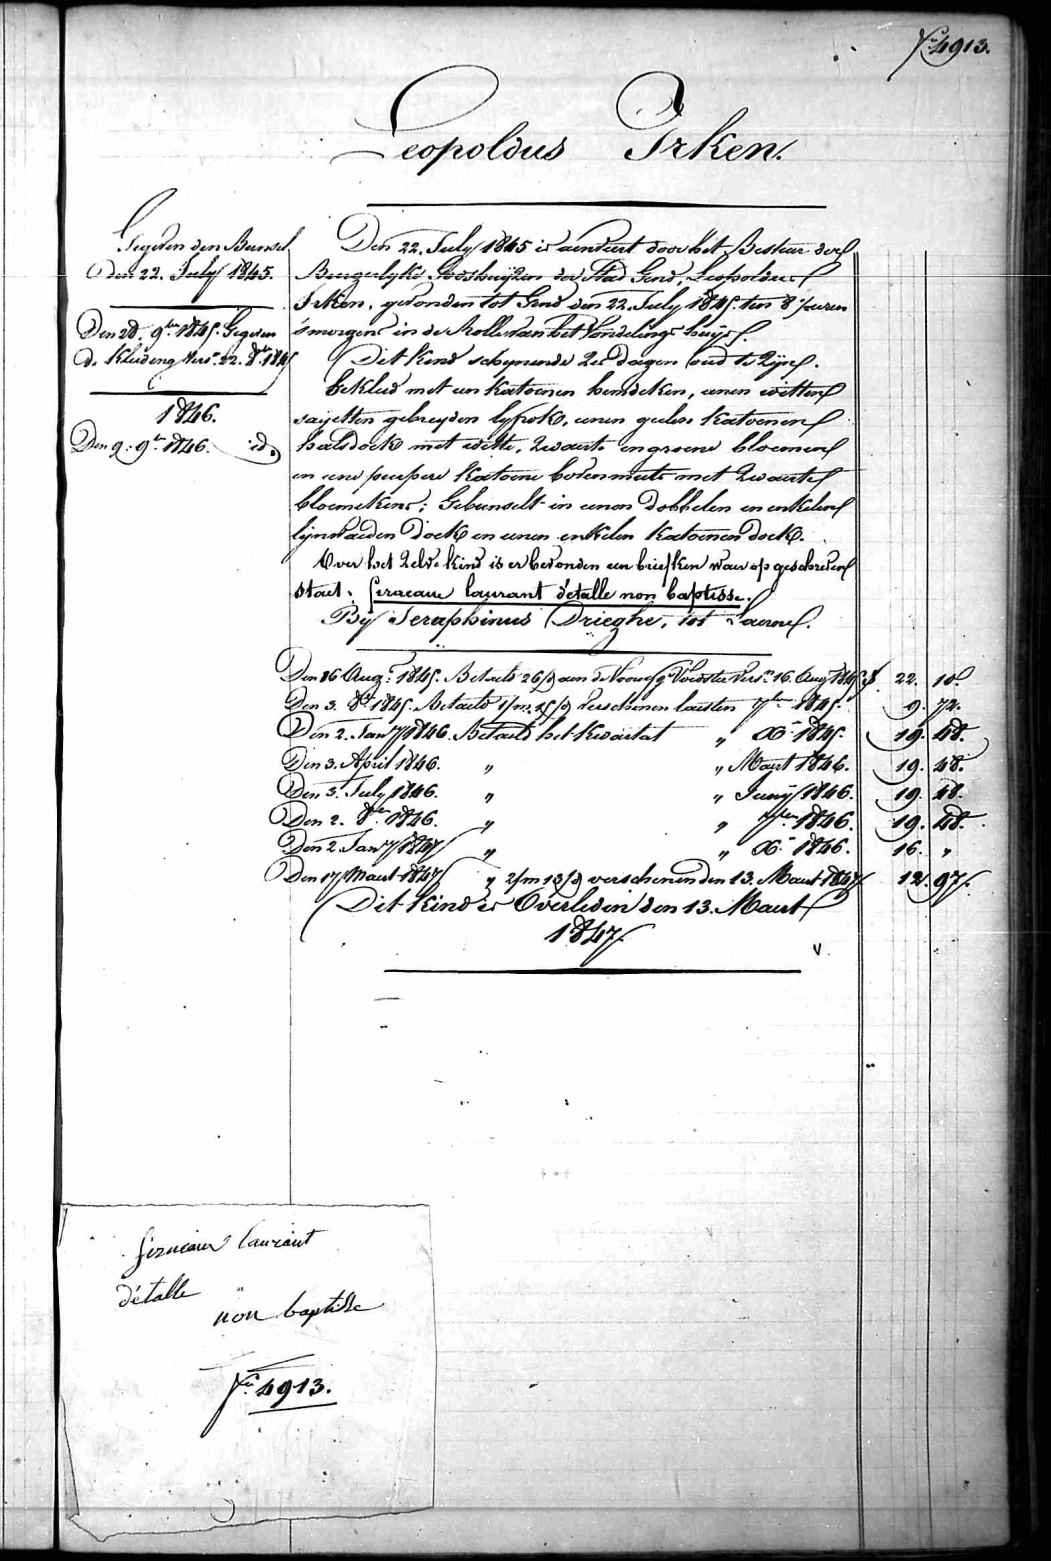 f.º 4913.
Leopoldus Irken.
Gegeven den Bunsel
den 22. July 1845.
Den 28. 9.ber 1845. Gegeven
de Kleideng Vers.n 22. 8.ber 1845
1846.
Den 9. 9.br 1846. id.
Den 22. July 1845 is aenveert door het Bestuer der
Burgerlyke Godshuijzen der Stad Gend, Leopoldus
Irken, gevonden tot Gend den 22. July 1845. ten 8 ueren
'smorgens in de Rolle van het Vondelings huijs.
Dit Kind schynende zes dagen oud te zijn.
bekleed met een Katoenen hemdeken, eenen witten
sayetten gebreyden lyfrok, eenen geelen Katoenen
halsdoek met witte, zwarte en groene bloemen
en eene purpere Katoene bovenmuts met zwarte
bloemekens; Gebunselt in eenen dobbelen en enkelen
lijnwaeden Doek en eenen enkelen Katoenen doek.
Over het zelve kind is er bevonden een briefken waer op geschreven
staet: seraeaux laurant détalle non baptisse.
By Seraphinus Drieghe, tot
Den 16 Aug.s 1845. Betaeld 26/d aen de Voedster Vers.n 16. Aug.s 1845 f 22. 10.
Den 3. 8.br 1845. Betaeld 1/m. 15/d verschenen laesten 7.ber 1845. 9. 72.
Den 2. Jan.y 1846. Betaeld het Kwartael " X.r 1845. 19. 48.
Den 3. April 1846. " " Maert 1846. 19. 48.
Den 3. July 1846. " " Junij 1846. 19. 48.
Den 2. 8.ber 1846. " " 7.ber 1846. 19. 48.
Den 2. Jan.y 1847 " " X.r 1846. 16. "
Den 17 Maert 1847 " 2/m 13/d verschenen den 13. Maert 1847 12. 97.
Dit Kind is Overleden den 13. Maert
1847.
v
seraeaux laurant
détalle
non baptisse
f.º 4913.